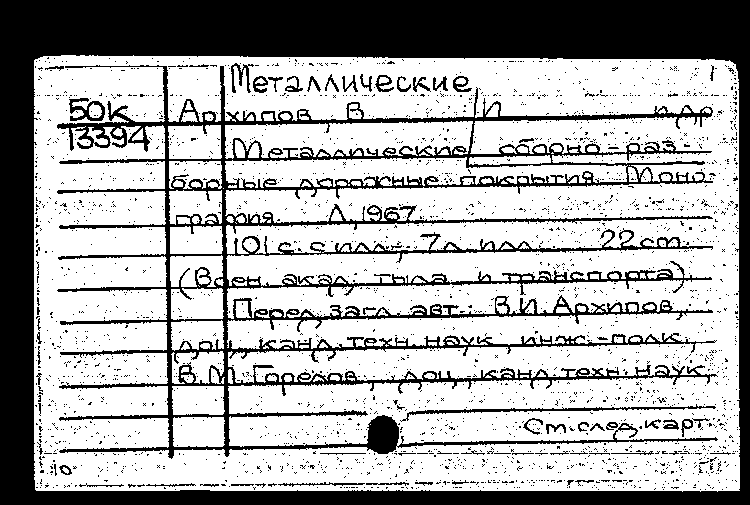 Металлические 1
50К Архипов, В И и др
13394
Металлические сборно-раз-
борные дорожные покрытия. Моно-
графия. Л, 1967.
101 с. с илл.; 7 л. илл. 22 cm.
(Воен. акад. тыла и транспорта).
Перед загл. авт.: В.И. Архипов,
доц., канд. техн. наук, инж.-полк.,
В.М. Горелов, доц., канд. техн. наук,
См. след. карт.